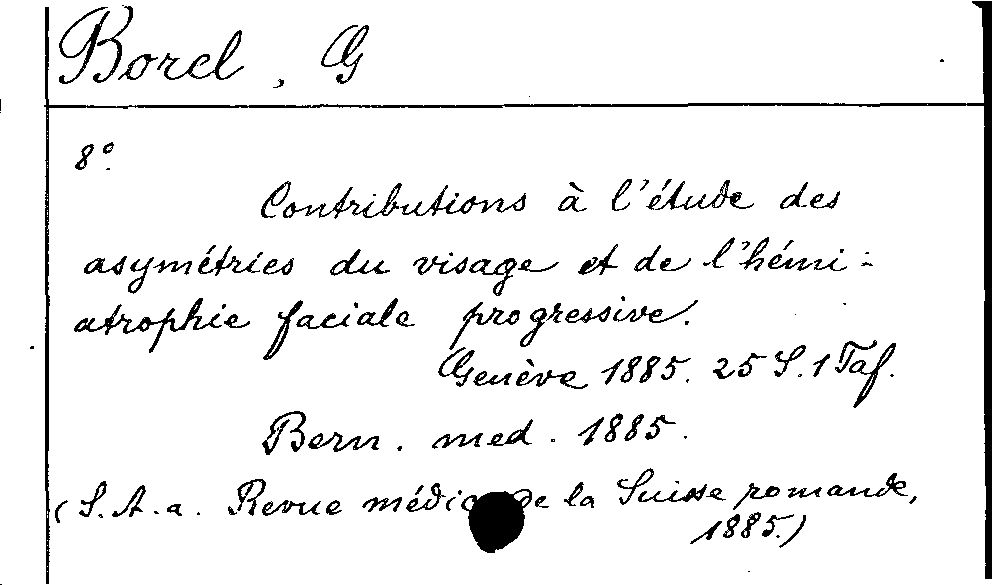 Borel, G
8°.
Contributions à l'étude des
asymétries du visage et de l'hémi-
atrophie faciale progressive.
Genève 1885. 25 S. 1 Taf.
Bern. med. 1885.
(S. A. a. Revue de la Suisse romande,
1885.)